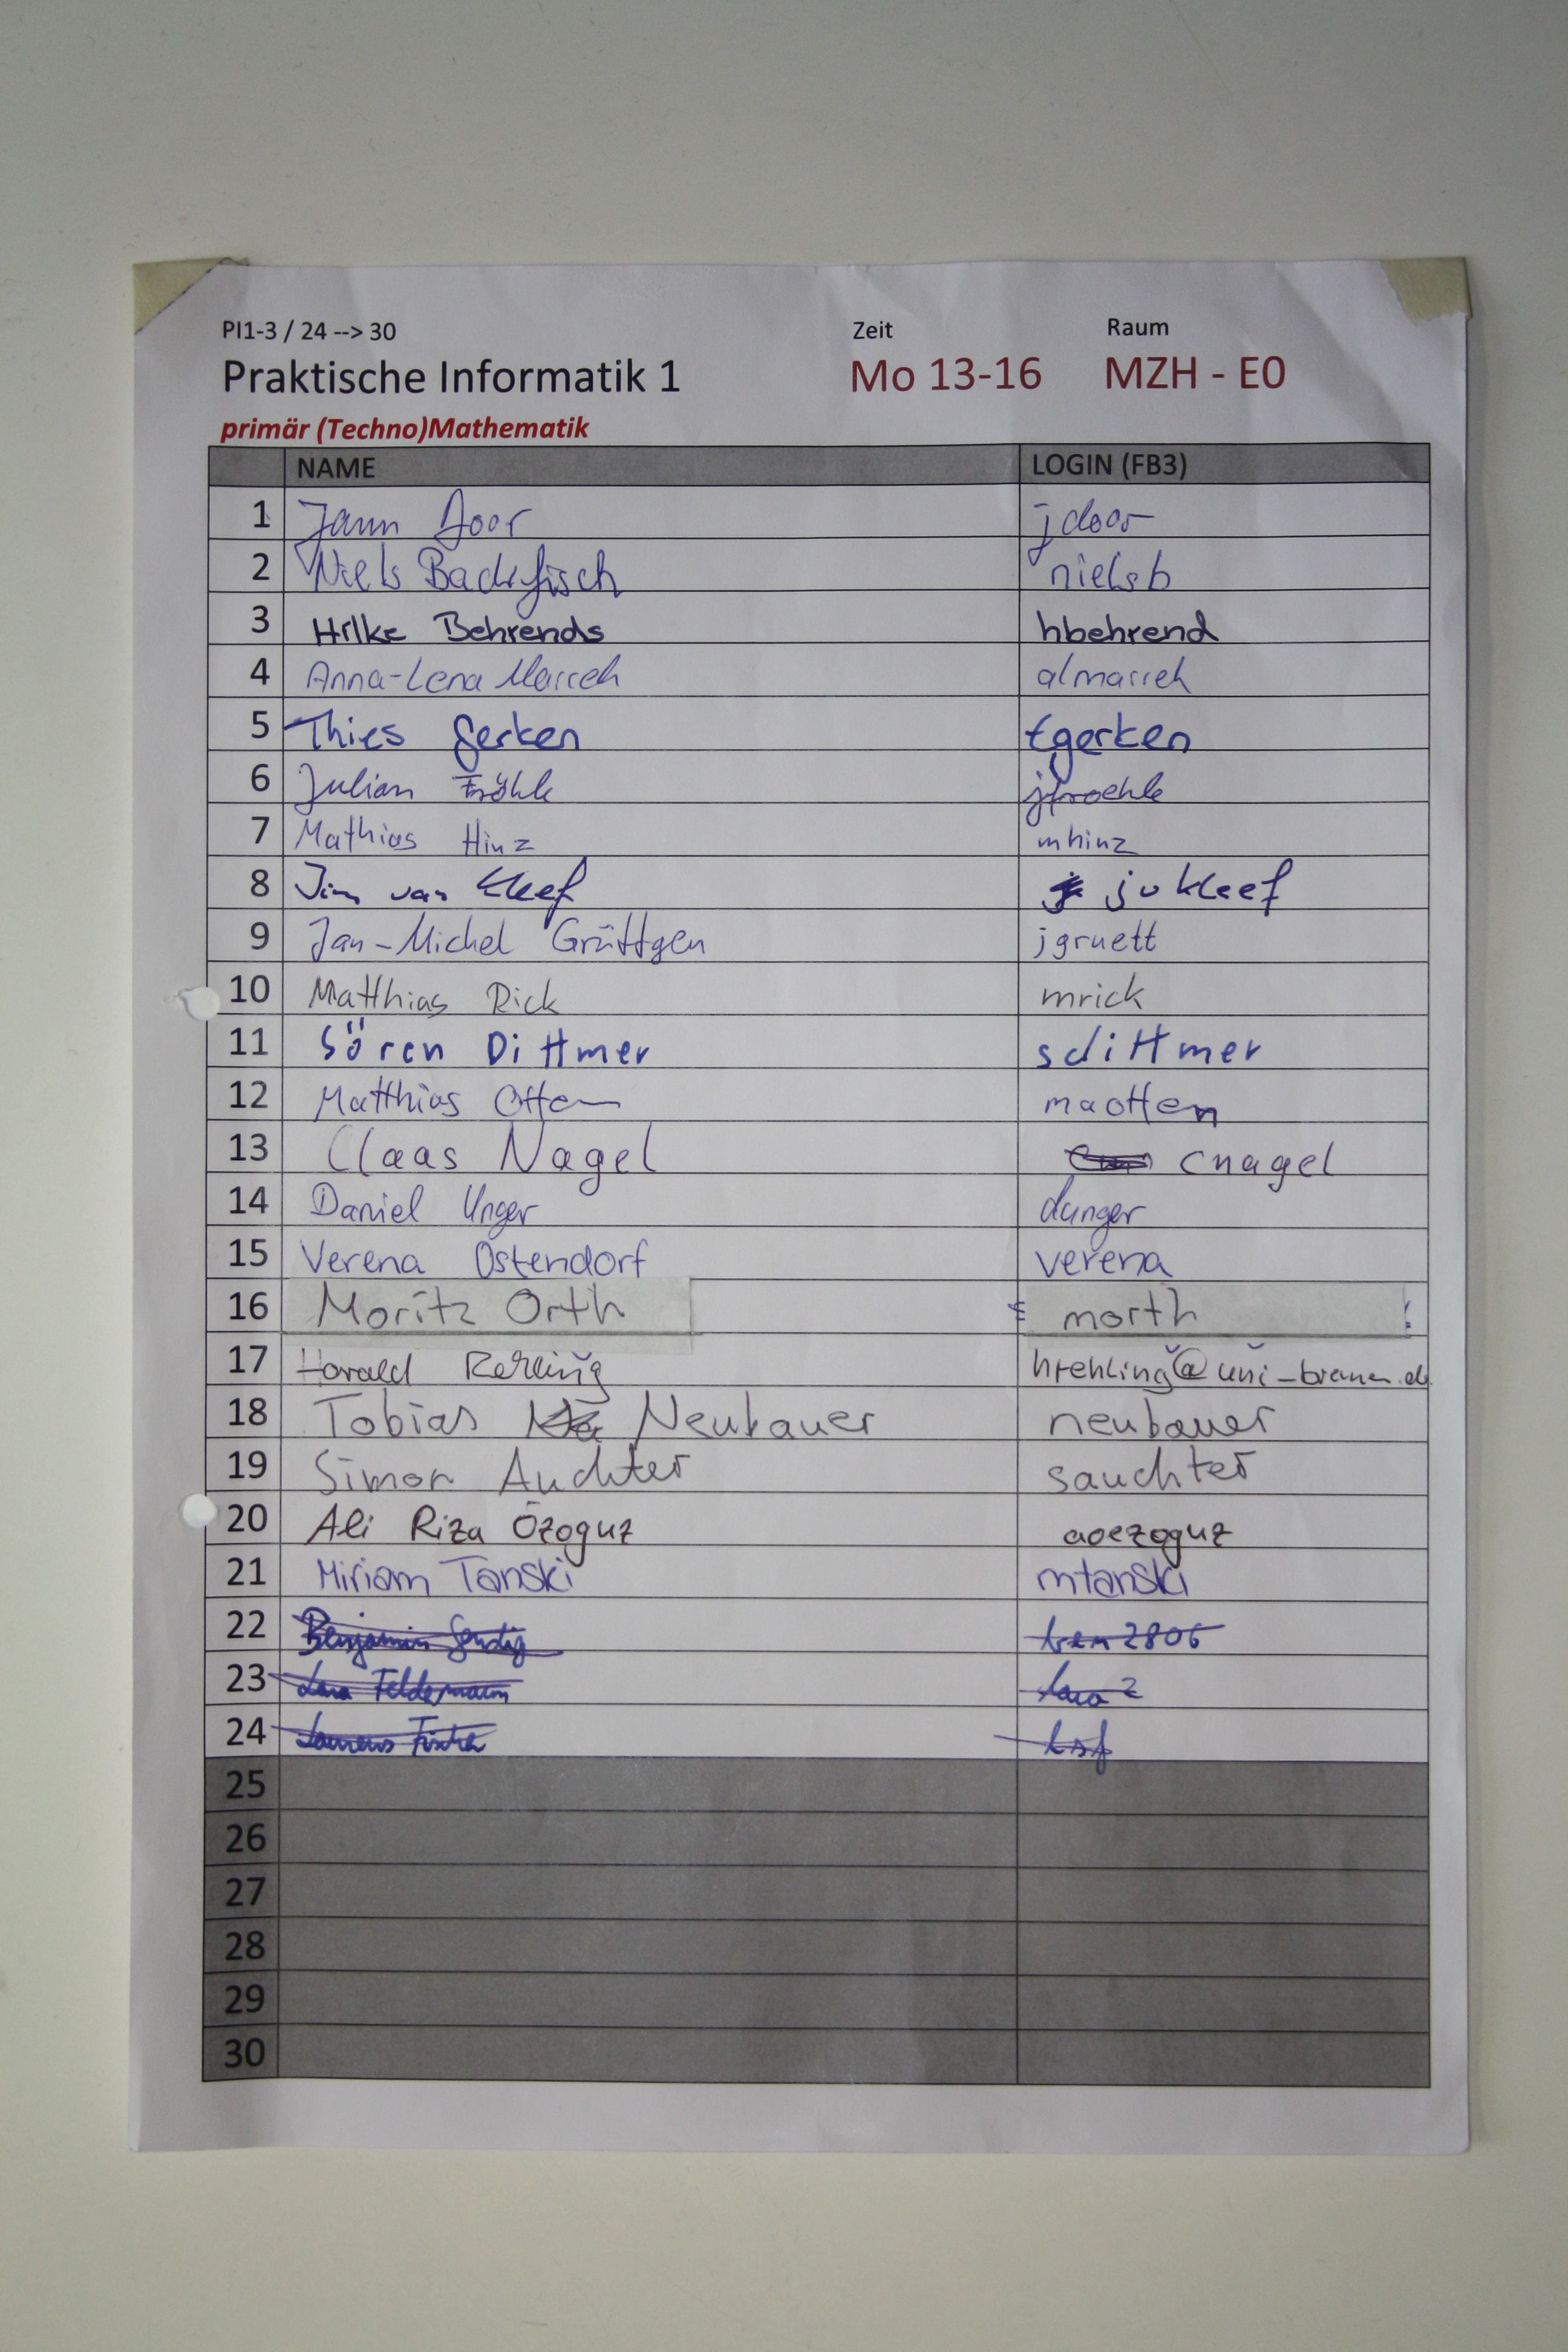 PI1-3 / 24 --> 30 Zeit Raum
Praktische Informatik 1 Mo 13-16 MZH - E0
primär (Techno)Mathematik
NAME LOGIN (FB3)
1 Jann Door jdoor
2 Niels Backfisch nielsb
3 Hilke Behrends hbehrend
4 Anna-Lena
5 Thies Gerken tgerken
6 Julian Fröhle jfroehle
7 Mathias Hinz mhinz
8 Jim van Kleef
9 Jan-Michel Grüttgen jgruett
10 Matthias Rick mrick
11 Sören Dittmer sdittmer
12 Matthias Otten maotten
13 Claas Nagel cnagel
14 Daniel Unger dunger
15 Verena Ostendorf verena
16 Moritz Orth morth
17 Harald Rehling hrehling@uni-bremen.de
18 Tobias Neubauer neubauer
19 Simon Auchter sauchter
20 Ali Riza Özoguz aoezoguz
21 Miriam Tanski mtanski
22 Benjamin
23 Feldermann
24 Fischer lsf
25
26
27
28
29
30